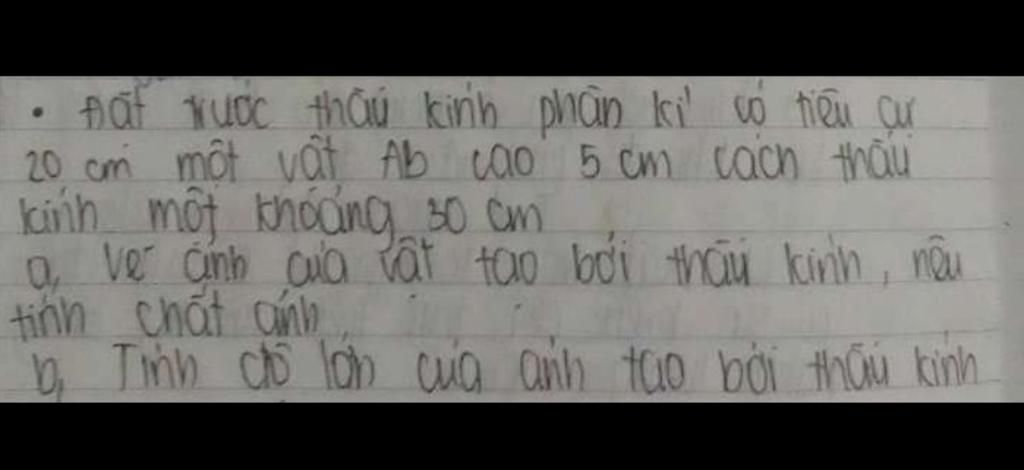 • Đặt trước thấu kính phân kì có tiêu cự
20 cm một vật Ab cao 5 cm cách thấu
kính một khoảng 30 cm
a, Vẽ ảnh của vật tạo bởi thấu kính, nêu
tính chất ảnh,
b, Tính độ lớn của ảnh tạo bởi thấu kính